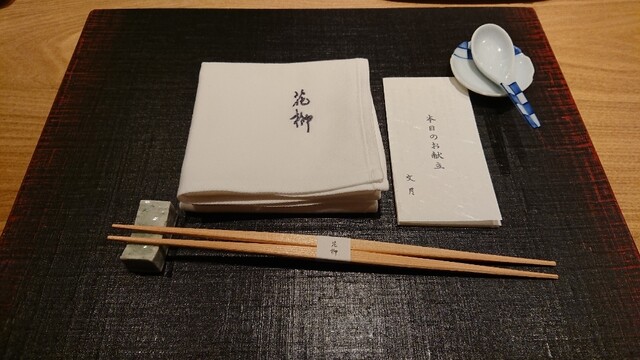 花柳
本日のお献立
文月
花柳